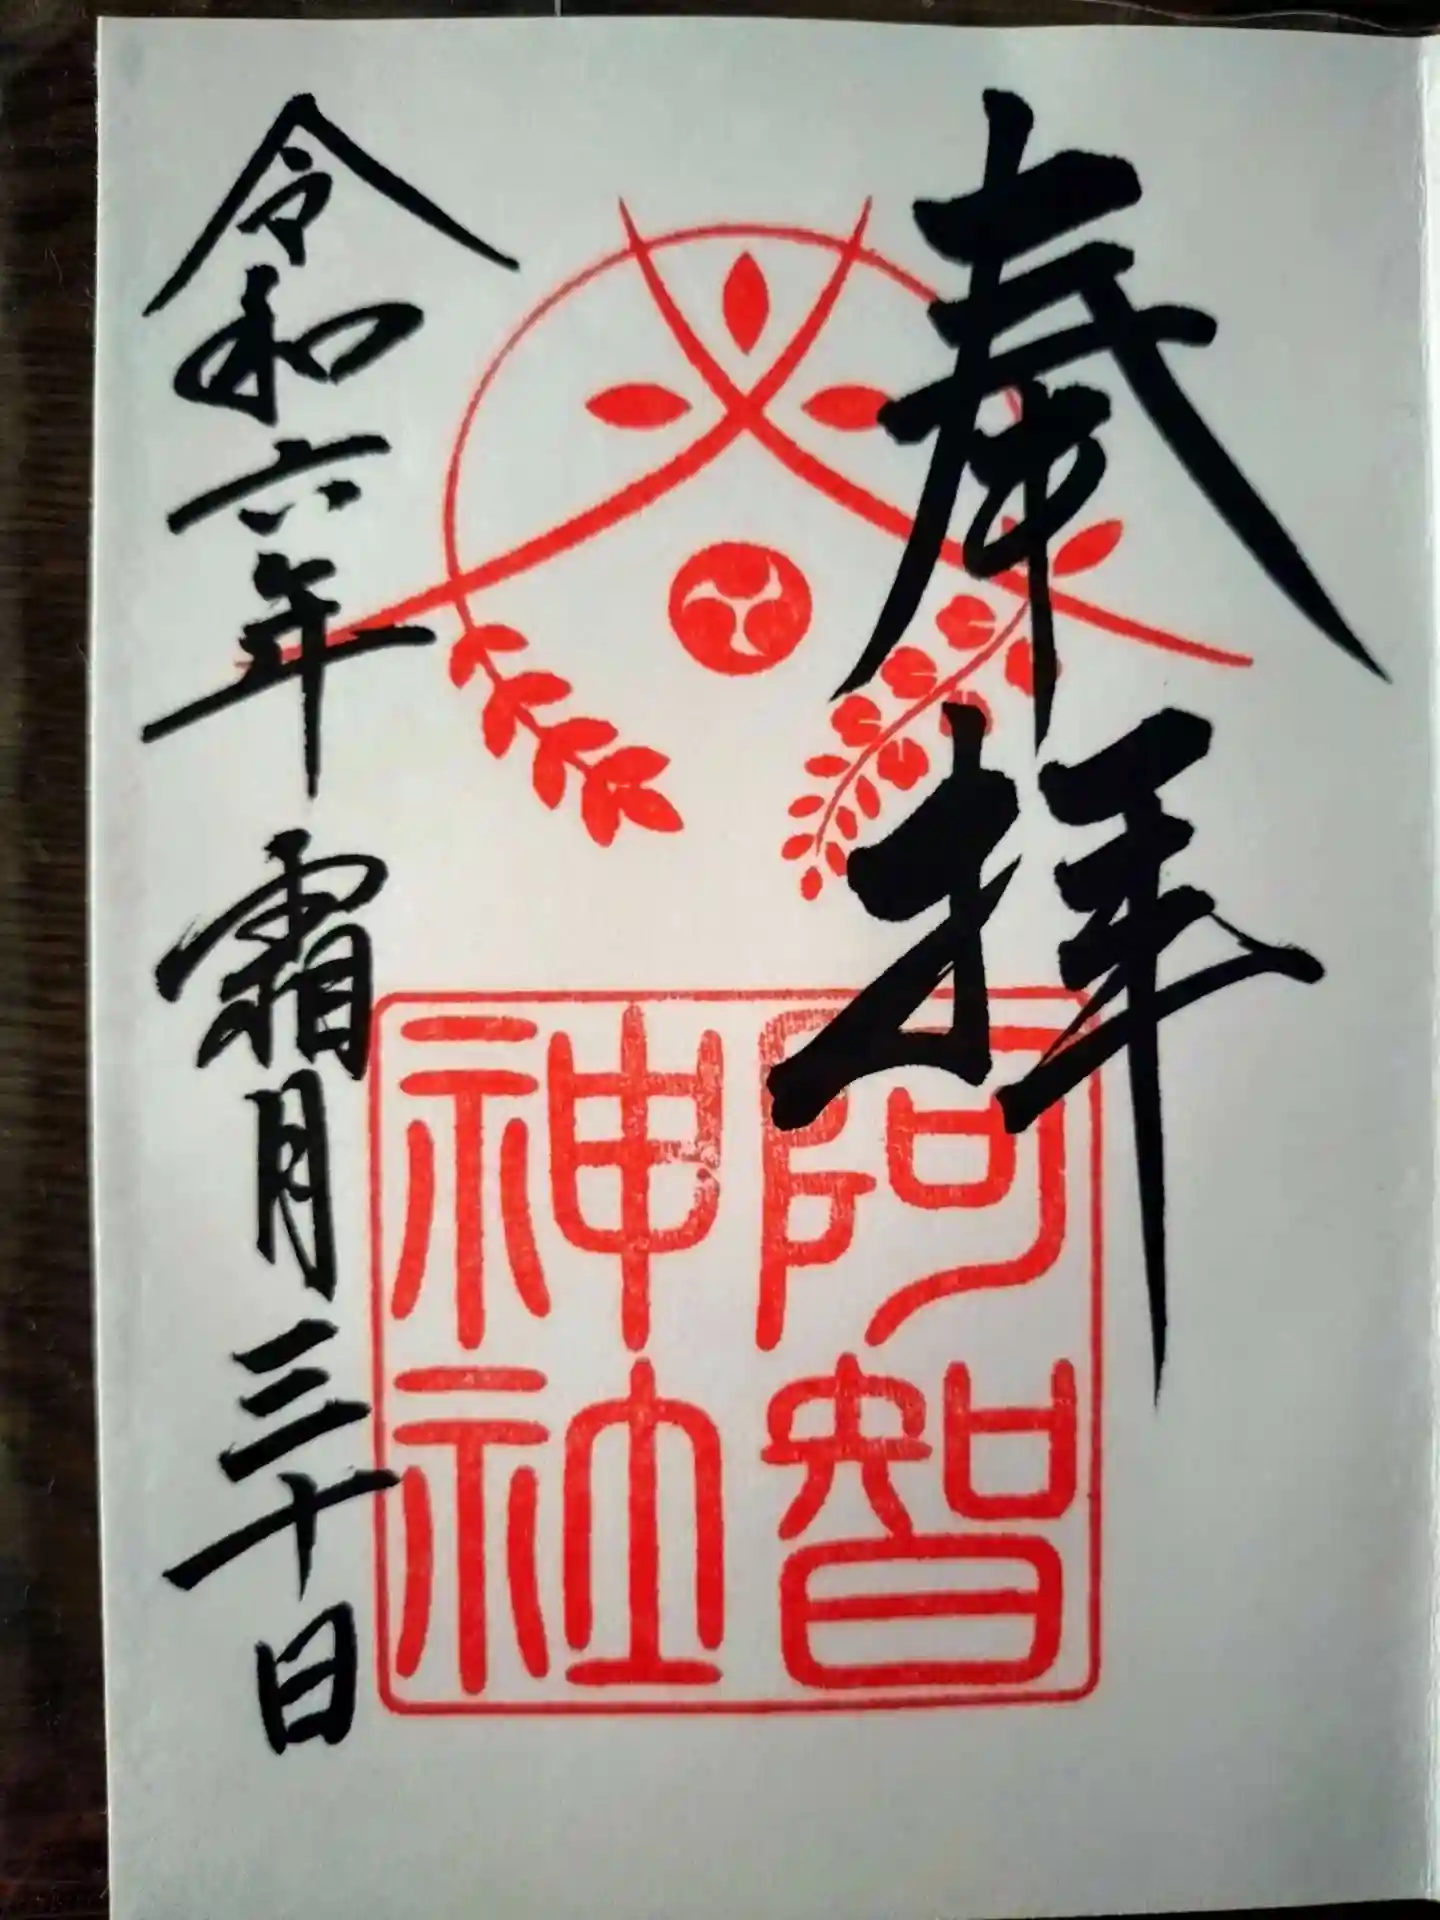 奉拝
阿智
神社
令和六年霜月三十日